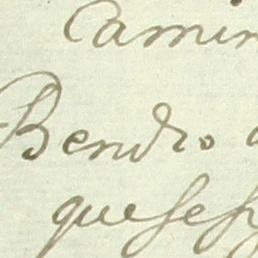 Camin
Bendro
quesess